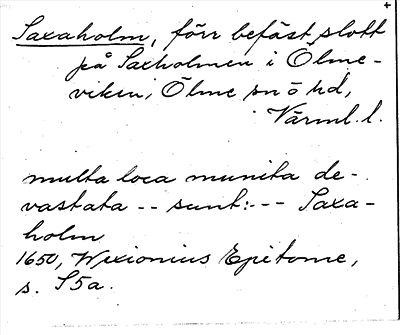 Saxaholm, förr befäst slott
på Saxholmen i Ölme-
viken, Ölme sn ö hd,
Värml. l.
multa loca munita de-
vastata -- sunt: --- Saxa-
holm
1650, Wexionius Epitome,
s. S5a.